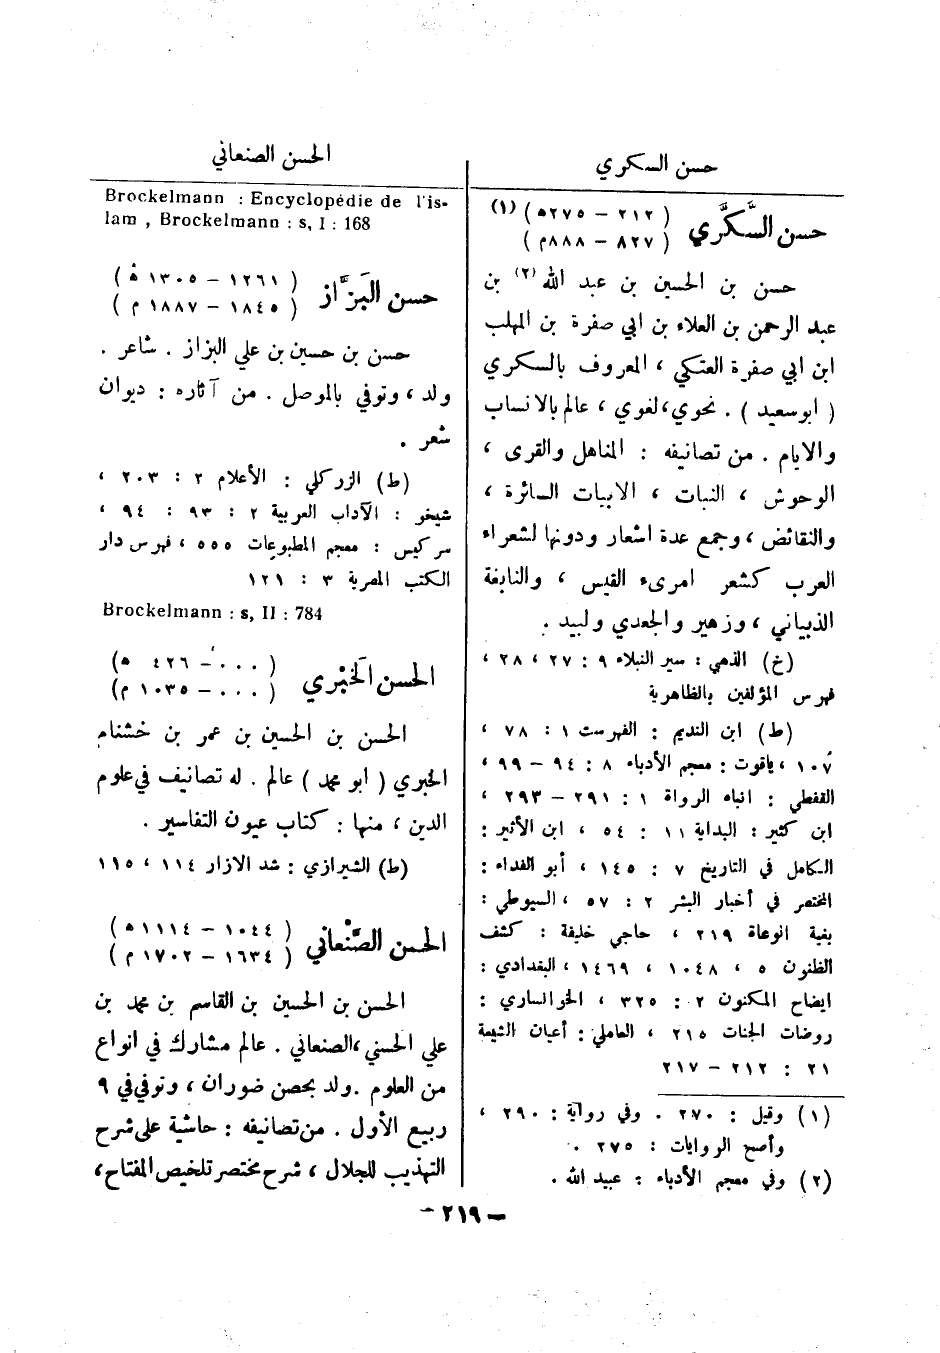 حسن السكري
حسن السُّكَّري ( ٢١٢ – ٢٧٥ه ) (١)
( ٨٢٧ – ٨٨٨م )
حسن بن الحسين بن عبد الله (٢) بن
عبد الرحمن بن العلاء بن ابي صفرة بن المهلب
ابن ابي صفرة العتكي ، المعروف بالسكري
( ابوسعيد ) . نحوي، لغوي ، عالم بالانساب
والايام . من تصانيفه : المناهل والقرى ،
الوحوش ، النبات ، الابيات السائرة ،
والنقائض ، وجمع عدة اشعار ودونها لشعراء
العرب كشعر امرىء القيس ، والنابغة
الذبياني ، وزهير والجعدي ولبيد .
(خ) الذهي : سير النبلاء ٩ : ٢٧ ، ٢٨ ،
فهرس المؤلفين بالظاهرية
(ط) ابن النديم : الفهرست ١ : ٧٨ ،
١٠٧ ، ياقوت : معجم الأدباء ٨ : ٩٤ – ٩٩ ،
القفطي : انباه الرواة ١ : ٢٩١ – ٢٩٣ ،
ابن كثير : البداية ١١ : ٥٤ ، ابن الأثير :
الكامل في التاريخ ٧ : ١٤٥ ، أبو الفداء :
المختصر في أخبار البشر ٢ : ٥٧ ، السيوطي :
بغية الوعاة ٢١٩ ، حاجي خليفة : كشف
الظنون ٥ ، ١٠٤٨ ، ١٤٦٩ ، البغدادي :
ايضاح المكنون ٢ : ٣٢٥ ، الخوانساري :
روضات الجنات ٢١٥ ، العاملي : أعيان الشيعة
٢١ : ٢١٢ – ٢١٧
(١) وقيل : ٢٧٠ . وفي رواية : ٢٩٠ ،
وأصح الروايات : ٢٧٥ .
(٢) وفي معجم الأدباء : عبيد الله .
الحسن الصنعاني
Brockelmann : Encyclopédie de l'is-
lam , Brockelmann : s, I : 168
حسن البَزَّاز ( ١٢٦١ – ١٣٠٥ ه )
( ١٨٤٥ – ١٨٨٧ م )
حسن بن حسين بن علي البزاز . شاعر .
ولد ، وتوفي بالموصل . من آثاره : ديوان
شعر .
(ط) الزركلي : الأعلام ٢ : ٢٠٣ ،
شيخو : الآداب العربية ٢ : ٩٣ : ٩٤ ،
سركيس : معجم المطبوعات ٥٥٥ ، فهرس دار
الكتب المصرية ٣ : ١٢١
Brockelmann : s, II : 784
الحسن الخَبْري ( . . . – ٤٢٦ ه )
( . . . – ١٠٣٥ م )
الحسن بن الحسين بن عمر بن خشنام
الخبري ( ابو محمد ) عالم . له تصانيف في علوم
الدين ، منها : كتاب عيون التفاسير .
(ط) الشيرازي : شد الازار ١١٤ ، ١١٥
الحسن الصَّنْعاني ( ١٠٤٤ – ١١١٤ ه )
( ١٦٣٤ – ١٧٠٢ م )
الحسن بن الحسين بن القاسم بن محمد بن
علي الحسني ، الصنعاني . عالم مشارك في انواع
من العلوم . ولد بحصن ضوران ، وتوفي في ٩
ربيع الأول . من تصانيفه : حاشية على شرح
التهذيب للجلال ، شرح مختصر تلخيص المفتاح ،
– ٢١٩ –